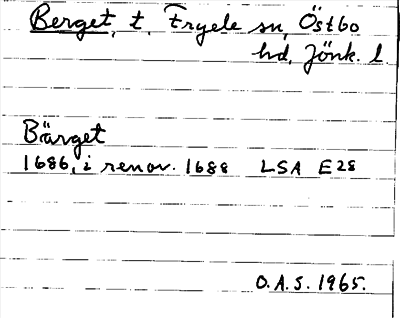 Berget, t, Fryele sn, Östbo
hd, Jönk. l.
Bärget
1686, i renov. 1688 LSA E28
O.A.S. 1965.